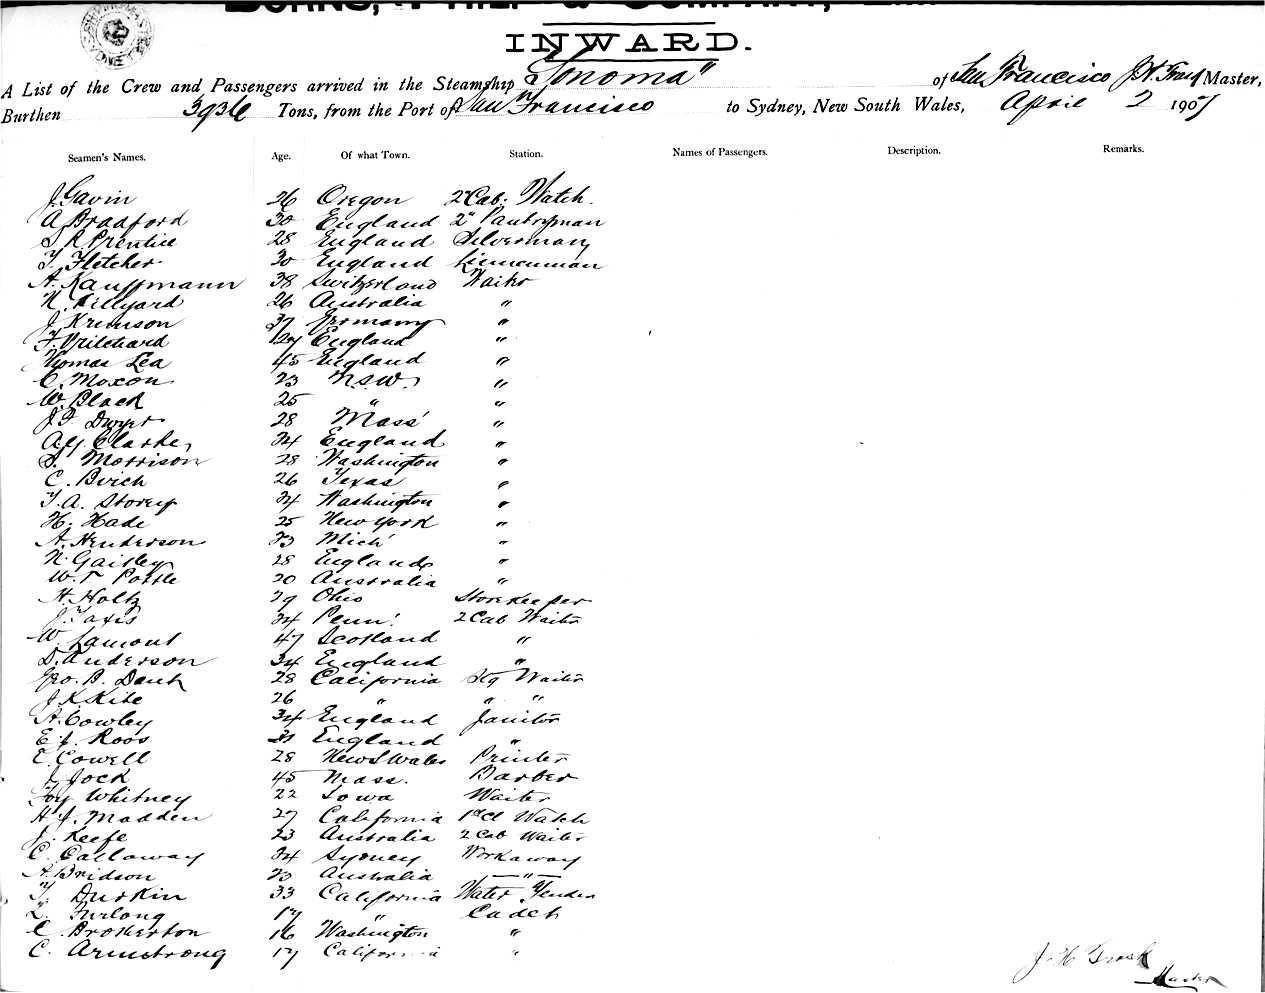 BURNS, PHILP & COMPANY,
INWARD.
A List of the Crew and Passengers arrived in the Steamship "Sonoma" of San Francisco J. H. Trask Master,
Burthen 3936 Tons, from the Port of San Francisco to Sydney, New South Wales, April 2 1907
Seamen's Names. Age. Of what Town. Station. Names of Passengers. Description. Remarks.
J. Gavin 26 Oregon 2" Cab. Watch.
A Bradford 30 England 2" Pantryman
S R Prentice 28 England Silverman
T. Fletcher 30 England Linnenman
A. Kauffmann 38 Switzerland Waiter
N. Hillyard 26 Australia "
J. Kremson 37 Germany "
F. Pritchard 27 England "
Thomas Lea 45 England "
C. Moxon 23 N.S.W. "
W. Black 25 " "
J F Dwyer 28 Mass' "
A. Clarke 34 England "
S. Morrison 28 Washington "
C. Birch 26 Texas "
T. A. Storey 34 Washington "
H. Hade 25 New York "
A. Henderson 23 Mich' "
N. Gaitley 28 England "
W. T Pottle 20 Australia "
H. Holtz 29 Ohio Storekeeper
J. Taxis 34 Penn'. 2 Cab Waiter
W. Lamont 47 Scotland "
D. Anderson 34 England "
Geo. B. Dank 28 California Stg Waiter
J. K. Kite 26 " " "
A. Cowley 34 England Janitor
E. J. Roos 31 England "
E. Cowell 28 New S Wales Printer
J. Jock 45 Mass. Barber
Foy Whitney 22 Iowa Waiter
H J. Madden 27 California 1st Cl Watch
J. Keefe 23 Australia 2 Cab Waiter
C. Callaway 34 Sydney Workaway
A. Bridson 23 Australia "
T. Durkin 33 California Water Tender
L. Furlong 17 " Cadet
C. Brokerton 16 Washington "
C. Armstrong 17 California "
J. H Trask
Master